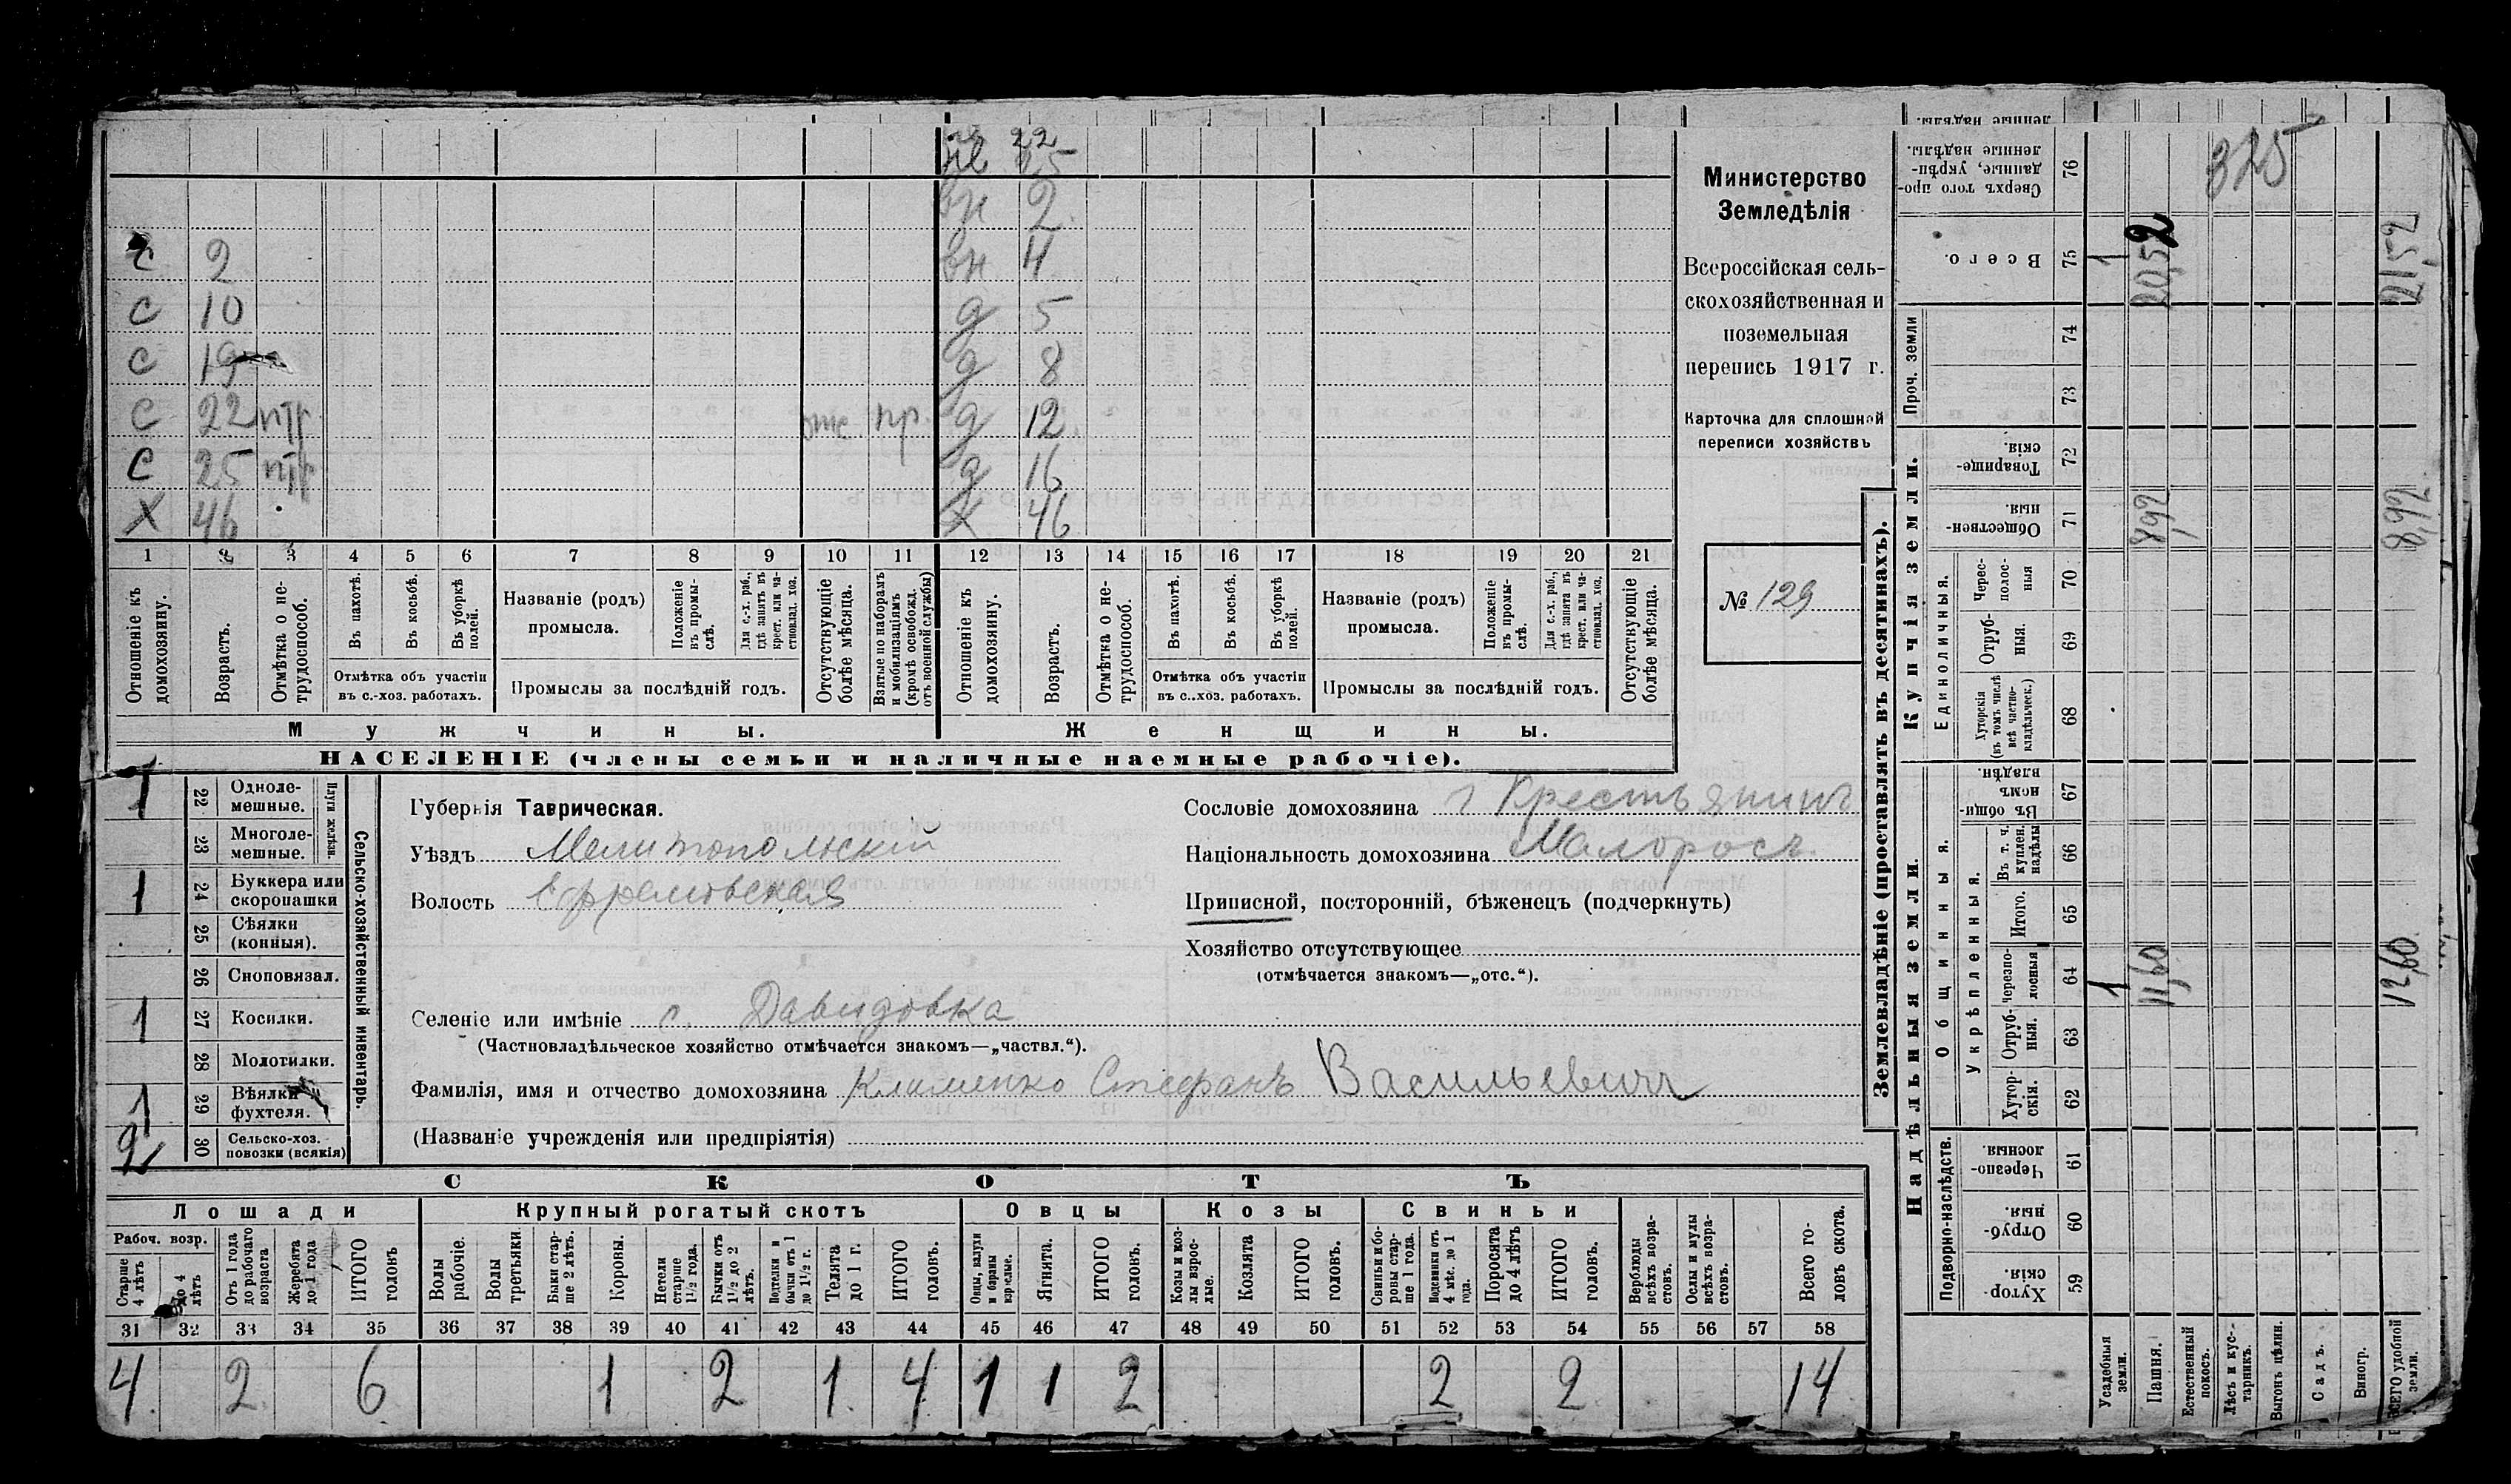 нв 22
нв 25
вн 2
с 2 вн 4
с 10 д 5
с 19 д 8
с 22 отс. пр. д 12
с 25 д 16
Х 46 Х 46
1 2 3 4 5 6 7 8 9 10 11 12 13 14 15 16 17 18 19 20 21
Отношеніе къ домохозяину.
Возрастъ.
Отмѣтка о нетрудоспособ.
Въ пахотѣ.
Въ косьбѣ.
Въ уборкѣ полей.
Отмѣтка объ участіи
въ с.-хоз. работахъ.
Названіе (родъ)
промысла.
Положеніе въ промыслѣ.
Для с.-х. раб., гдѣ занятъ въ крест. или частновлад. хоз.
Промыслы за послѣдній годъ.
Отсутствующіе болѣе мѣсяца.
Взятые по наборамъ и мобилизаціямъ (кромѣ освобожд. отъ военной службы)
Отношеніе къ домохозяину.
Возрастъ.
Отмѣтка о нетрудоспособ.
Въ пахотѣ.
Въ косьбѣ.
Въ уборкѣ полей.
Отмѣтка объ участіи
въ с.-хоз. работахъ.
Названіе (родъ)
промысла.
Положеніе въ промыслѣ.
Для с.-х. раб., гдѣ занята въ крест. или частновлад. хоз.
Промыслы за послѣдній годъ.
Отсутствующіе болѣе мѣсяца.
Мужчины. Женщины.
НАСЕЛЕНІЕ (члены семьи и наличные наемные рабочіе).
Министерство
Земледѣлія
Всероссійская сель-
скохозяйственная и
поземельная
перепись 1917 г.
Карточка для сплошной
переписи хозяйствъ
№ 129
1 22 Одноле-
мешные.
23 Многоле-
мешные.
Плуги желѣзн.
1 24 Буккера или
скоропашки
25 Сѣялки
(конныя).
26 Сноповязал.
1 27 Косилки.
28 Молотилки.
1 29 Вѣялки
фухтеля.
2 30 Сельско-хоз.
повозки (всякія)
Сельско-хозяйственный инвентарь.
Губернія Таврическая.
Уѣздъ Мелитопольскій
Волость Ефремовская
Сословіе домохозяина Крестьянинъ
Національность домохозяина Малоросъ.
Приписной, посторонній, бѣженецъ (подчеркнуть)
Хозяйство отсутствующее
(отмѣчается знакомъ—„отс.“).
Селеніе или имѣніе с. Давидовка
(Частновладѣльческое хозяйство отмѣчается знакомъ—„частвл.“).
Фамилія, имя и отчество домохозяина Клименко Стефанъ Васильевичъ
(Названіе учрежденія или предпріятія)
СКОТЪ
Лошади Крупный рогатый скотъ Овцы Козы Свиньи
Рабоч. возр.
Старше 4 лѣтъ
до 4 лѣтъ
Отъ 1 года до рабочаго возраста
Жеребята до 1 года
ИТОГО головъ
Волы рабочіе.
Волы третьяки.
Быки старше 2 лѣтъ.
Коровы.
Нетели старше 1½ года.
Бычки отъ 1½ до 2 лѣтъ.
Подтелки и бычки отъ 1 до 1½ г.
Телята до 1 г.
ИТОГО головъ.
Овцы, валухи и бараны взрослые.
Ягнята.
ИТОГО головъ.
Козы и козлы взрослые.
Козлята
ИТОГО головъ.
Свиньи и боровы старше 1 года.
Подсвинки отъ 4 мѣс. до 1 года.
Поросята до 4 лѣтъ
ИТОГО головъ.
Верблюды всѣхъ возрастовъ.
Ослы и мулы всѣхъ возрастовъ.
Всего головъ скота.
31 32 33 34 35 36 37 38 39 40 41 42 43 44 45 46 47 48 49 50 51 52 53 54 55 56 57 58
4 2 6 1 2 1 4 1 1 2 2 2 14
Землевладѣніе (проставлять въ десятинахъ).
Купчія земли.
Надѣльныя земли.
Сверхъ того проданные, укрѣпленные надѣлы. 76 325
Всего. 75 1 20,52 21,52
Проч. земли
74
73
Товарищескія. 72
Общественныя. 71 8,92 8,92
Единоличныя.
Чересполосныя 70
Отрубныя. 69
Хуторскія (въ томъ числѣ всѣ частновладѣльческ.) 68
Общинныя.
Въ общинномъ владѣн. 67
Укрѣпленныя.
Въ т. ч. куплен. надѣлы 66
Итого. 65
Черезполосныя 64 1 11,60 12,60
Отрубныя. 63
Хуторскія. 62
Подворно-наслѣдств.
Черезполосныя. 61
Отрубныя. 60
Хуторскія 59
Усадебныя земли.
Пашня.
Естественный покосъ.
Лѣсъ и кустарникъ.
Выгонъ цѣлин.
Садъ.
Виногр.
ВСЕГО удобной земли.